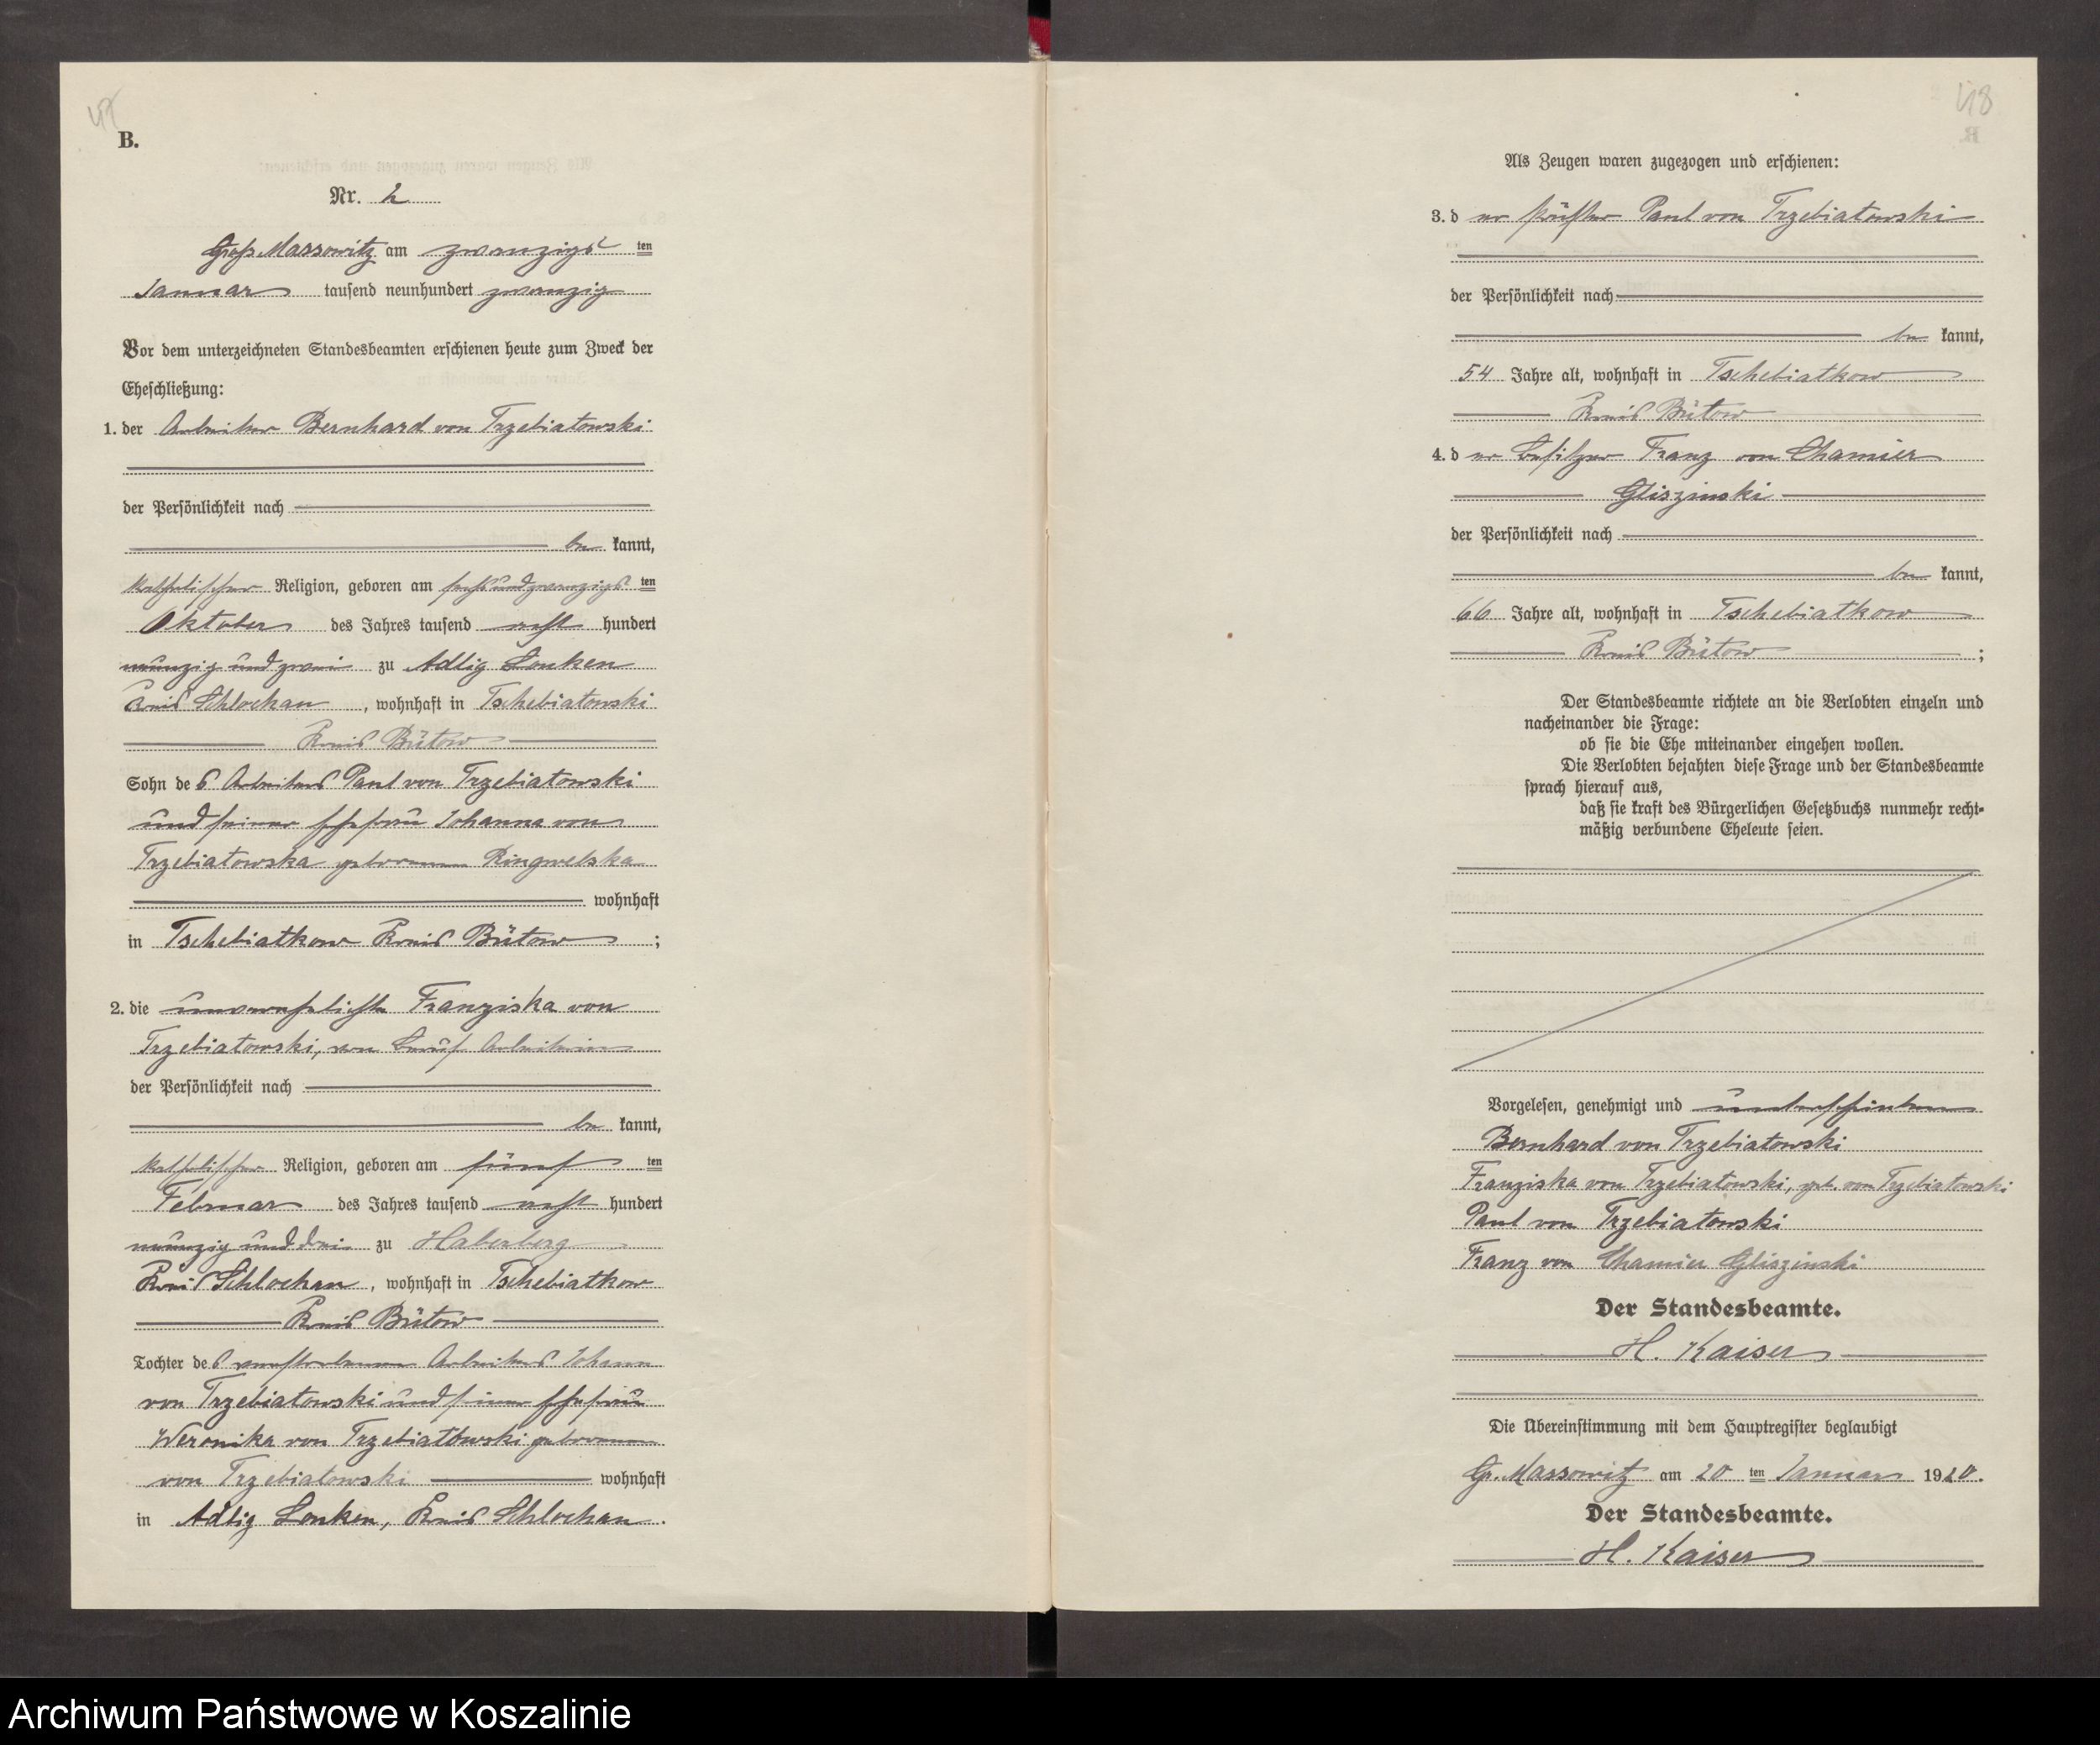 B.
Nr. 2
Groß Massowitz am zwanzigs ten
Januar tausend neunhundert zwanzig
Vor dem unterzeichneten Standesbeamten erschienen heute zum Zweck der
Eheschließung:
1. der Arbeiter Bernhard von Trzebiatowski
der Persönlichkeit nach
be kannt,
katholischer Religion, geboren am sechsundzwanzigs ten
Oktober des Jahres tausend acht hundert
neunzig und zwei zu Adlig Lonken
Kreis Schlochau, wohnhaft in Tschebiatowski
Kreis Bütow
Sohn des Arbeiters Paul von Trzebiatowski
und seiner Ehefrau Johanna von
Trzebiatowska geborenen Ringwelska
wohnhaft
in Tschebiatkow Kreis Bütow ;
2. die unverehelichte Franziska von
Trzebiatowski, von Beruf Arbeiterin
der Persönlichkeit nach
be kannt,
katholischer Religion, geboren am fünf ten
Februar des Jahres tausend acht hundert
neunzig und drei zu Haberberg
Kreis Schlochau, wohnhaft in Tschebiatkow
Kreis Bütow
Tochter des verstorbenen Arbeiters Johann
von Trzebiatowski und seiner Ehefrau
Weronika von Trzebiatowski geborenen
von Trzebiatowski wohnhaft
in Adlig Lonken, Kreis Schlochau.
48
Als Zeugen waren zugezogen und erschienen:
3. der Paul von Trzebiatowski
der Persönlichkeit nach
be kannt,
54 Jahre alt, wohnhaft in Tschebiatkow
Kreis Bütow
4. der Besitzer Franz von Chamier
Gliszinski
der Persönlichkeit nach
be kannt,
66 Jahre alt, wohnhaft in Tschebiatkow
Kreis Bütow ;
Der Standesbeamte richtete an die Verlobten einzeln und
nacheinander die Frage:
ob sie die Ehe miteinander eingehen wollen.
Die Verlobten bejahten diese Frage und der Standesbeamte
sprach hierauf aus,
daß sie kraft des Bürgerlichen Gesetzbuchs nunmehr recht-
mäßig verbundene Eheleute seien.
Vorgelesen, genehmigt und unterschrieben
Bernhard von Trzebiatowski
Franziska von Trzebiatowski, geb. von Trzebiatowski
Paul von Trzebiatowski
Franz von Chamier Gliszinski
Der Standesbeamte.
H. Kaiser
Die Übereinstimmung mit dem Hauptregister beglaubigt
Gr. Massowitz am 20 ten Januar 1920.
Der Standesbeamte.
H. Kaiser
Archiwum Państwowe w Koszalinie